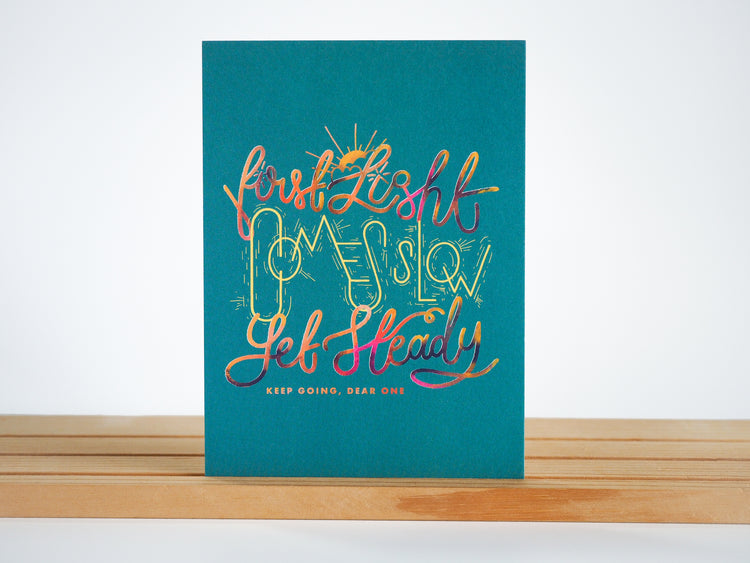 First Light
COMES SLOW
Yet Steady
KEEP GOING, DEAR ONE